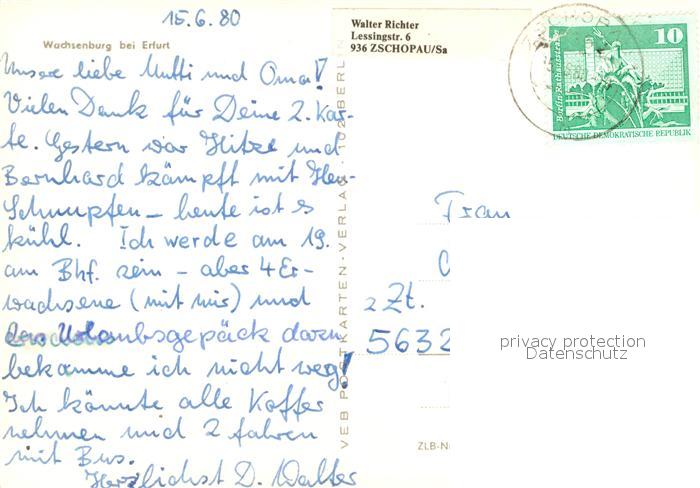 15.6.80
Wachsenburg bei Erfurt
Unsere liebe Mutti und Oma!
Vielen Dank für Deine 2. Kar-
te. Gestern war Hitze und
Bernhard kämpft mit Heu-
Schnupfen – heute ist es
kühl. Ich werde am 19.
am Bhf. sein – aber 4 Er-
wachsene (mit mir) und
das Urlaubsgepäck dazu
bekomme ich nicht weg!
Ich könnte alle Koffer
nehmen und 2 fahren
mit Bus.
Herzlichst D. Walter
VEB POSTKARTEN-VERLAG · 102 BERLIN
Walter Richter
Lessingstr. 6
936 ZSCHOPAU/Sa
ZSCHOPAU
10
Berlin, Rathausstraße
DEUTSCHE DEMOKRATISCHE REPUBLIK
Frau
z Zt.
5632
privacy protection
Datenschutz
ZLB-Nr